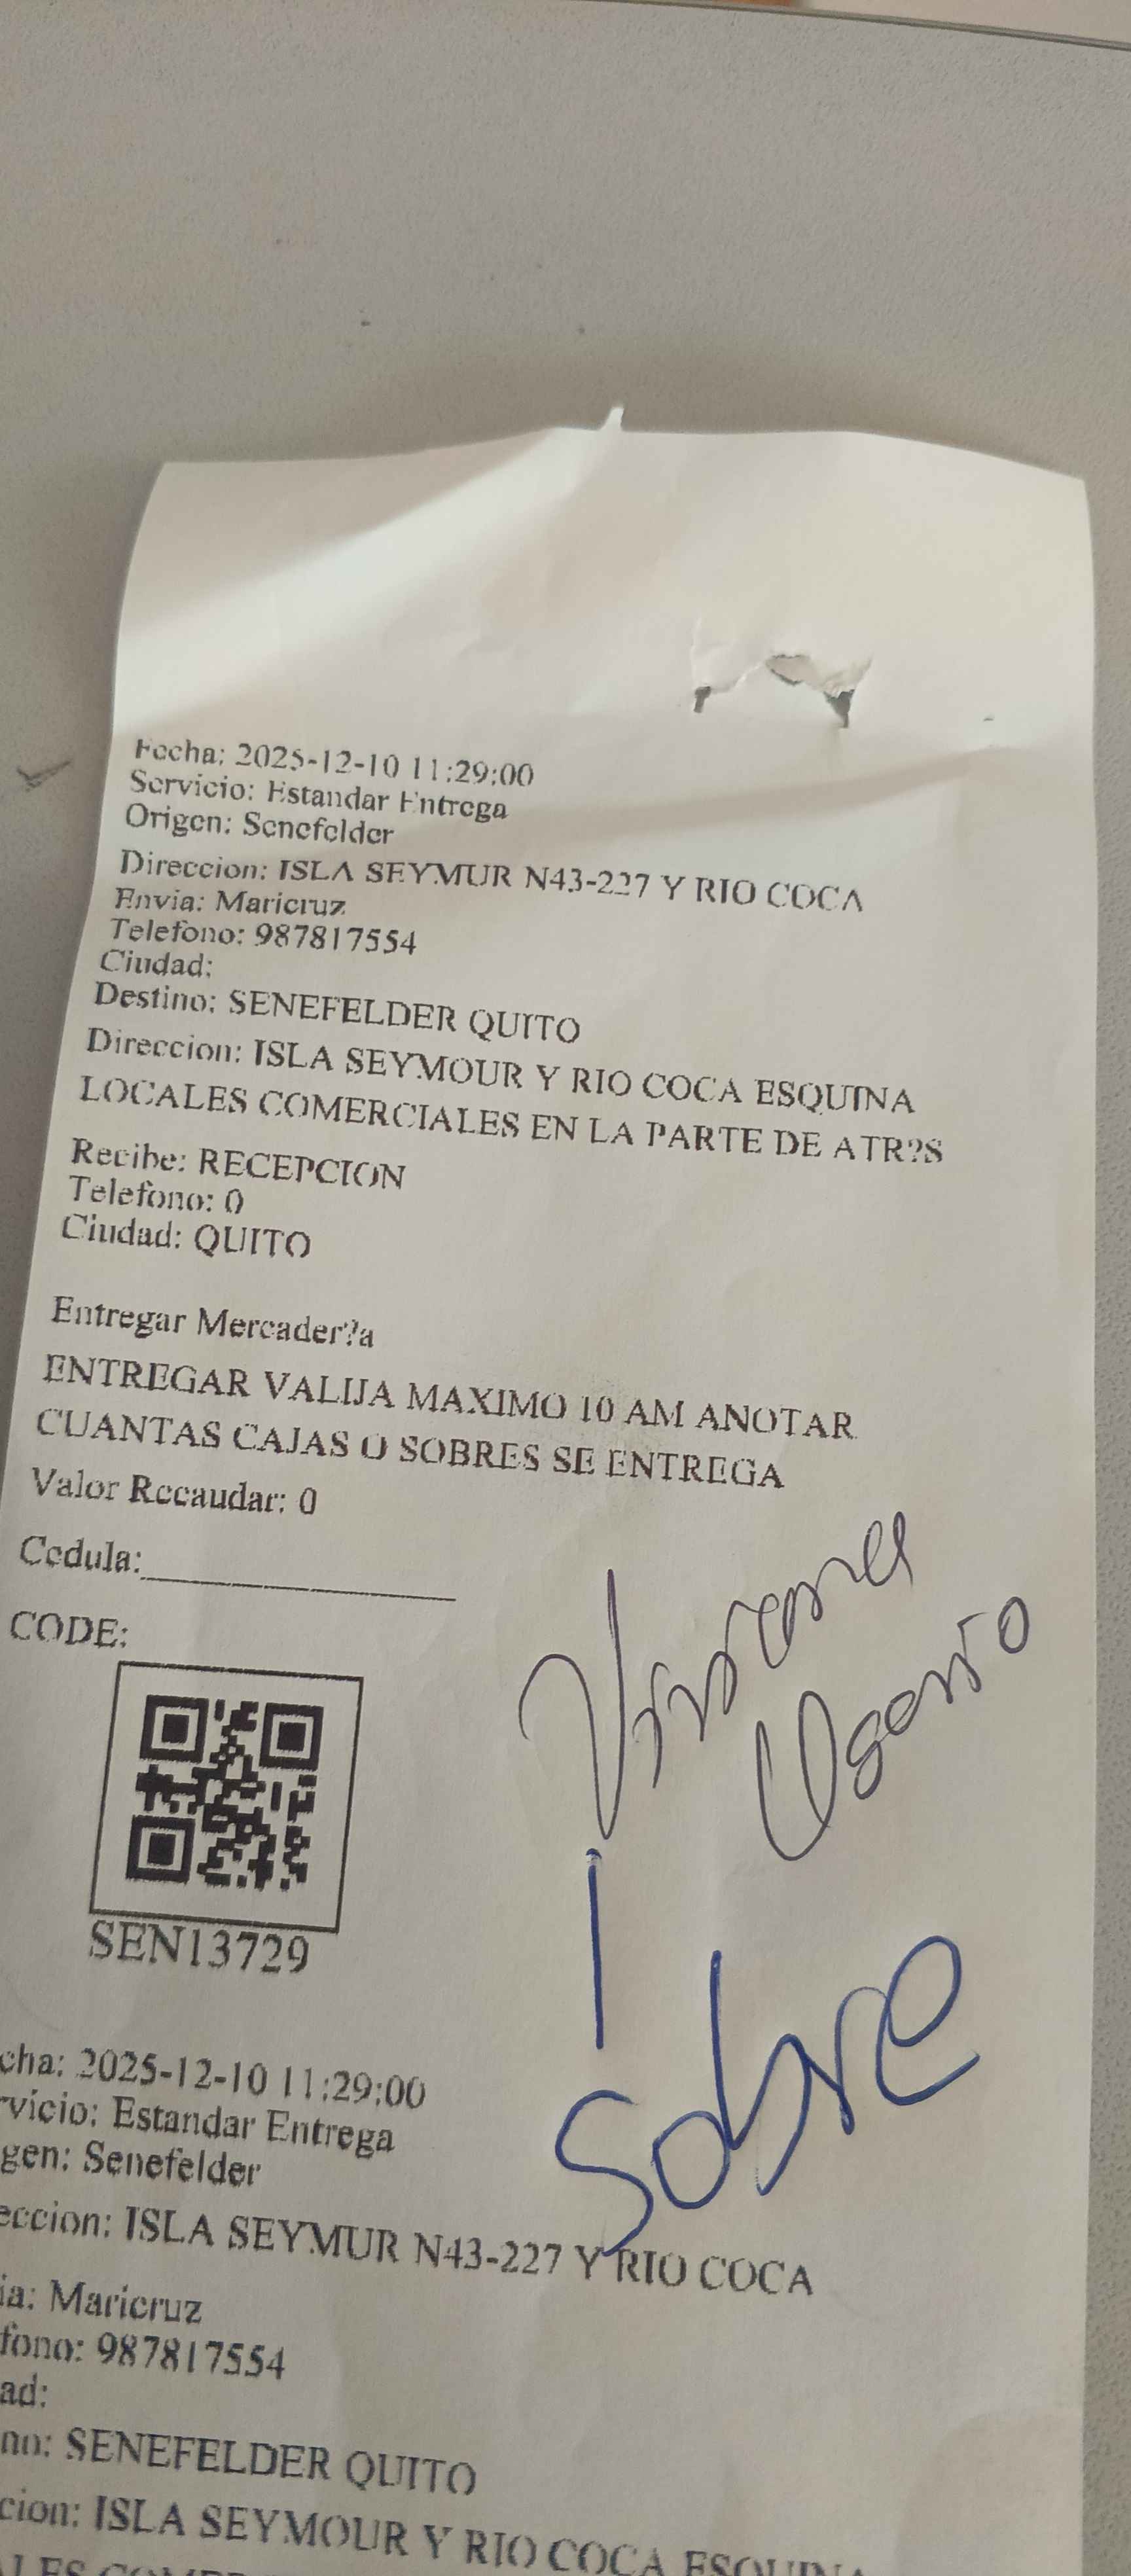 Fecha: 2025-12-10 11:29:00
Servicio: Estandar Entrega
Origen: Senefelder
Direccion: ISLA SEYMUR N43-227 Y RIO COCA
Envia: Maricruz
Telefono: 987817554
Ciudad:
Destino: SENEFELDER QUITO
Direccion: ISLA SEYMOUR Y RIO COCA ESQUINA
LOCALES COMERCIALES EN LA PARTE DE ATR?S
Recibe: RECEPCION
Telefono: 0
Ciudad: QUITO
Entregar Mercader?a
ENTREGAR VALIJA MAXIMO 10 AM ANOTAR
CUANTAS CAJAS O SOBRES SE ENTREGA
Valor Recaudar: 0
Cedula:
CODE:
Viviana
Osorio
SEN13729
1
Sobre
cha: 2025-12-10 11:29:00
rvicio: Estandar Entrega
gen: Senefelder
eccion: ISLA SEYMUR N43-227 Y RIO COCA
ia: Maricruz
fono: 987817554
ad:
no: SENEFELDER QUITO
cion: ISLA SEYMOUR Y RIO COCA ESQUINA